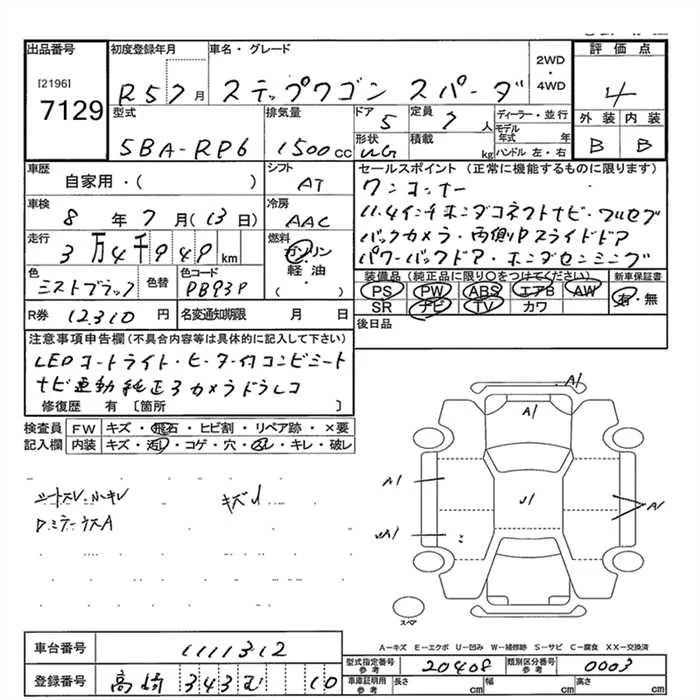 出品番号 初度登録年月 車名・グレード 2WD・4WD 評価点
[2196]
7129
R5 7月 ステップワゴン スパーダ 4
型式 排気量 ドア 5 定員 7人 ディーラー・並行 外装 内装
5BA-RP6 1500cc 形状 WG 積載 kg モデル年式 年 ハンドル 左・右 B B
車歴 自家用・( ) シフト AT セールスポイント(正常に機能するものに限ります)
車検 8年7月(13日) 冷房 AAC ワンオーナー
11.4インチホンダコネクトナビ・フルセグ
走行 3万4千949km 燃料 ガソリン 軽油・( ) バックカメラ・両側Pスライドドア
パワーバックドア・ホンダセンシング
色 ミストブラック 色替 色コード PB93P 装備品(純正品に限り○をつけてください) 新車保証書
PS PW ABS エアB AW 有・無
SR ナビ TV カワ
R券 12310円 名変通知期限 月 日 後日品
注意事項申告欄(不具合内容等は具体的に記入して下さい)
LEDコートライト・ヒーター付コンビシート
ナビ連動純正3カメラドラレコ
修復歴 有 [箇所 ]
検査員 FW キズ・飛石・ヒビ割・リペア跡・×要
記入欄 内装 キズ・汚レ・コゲ・穴・スレ・キレ・破レ
シートスレ キズ
A1
A1
A1
A1
スペア
A-キズ E-エクボ U-凹み W-補修跡 S-サビ C-腐食 XX-交換済
車台番号 1111312
型式指定番号 参考 20408 類別区分番号 参考 0003
登録番号 高崎 343 む 10 車庫証明用 参考 長さ cm 幅 cm 高さ cm